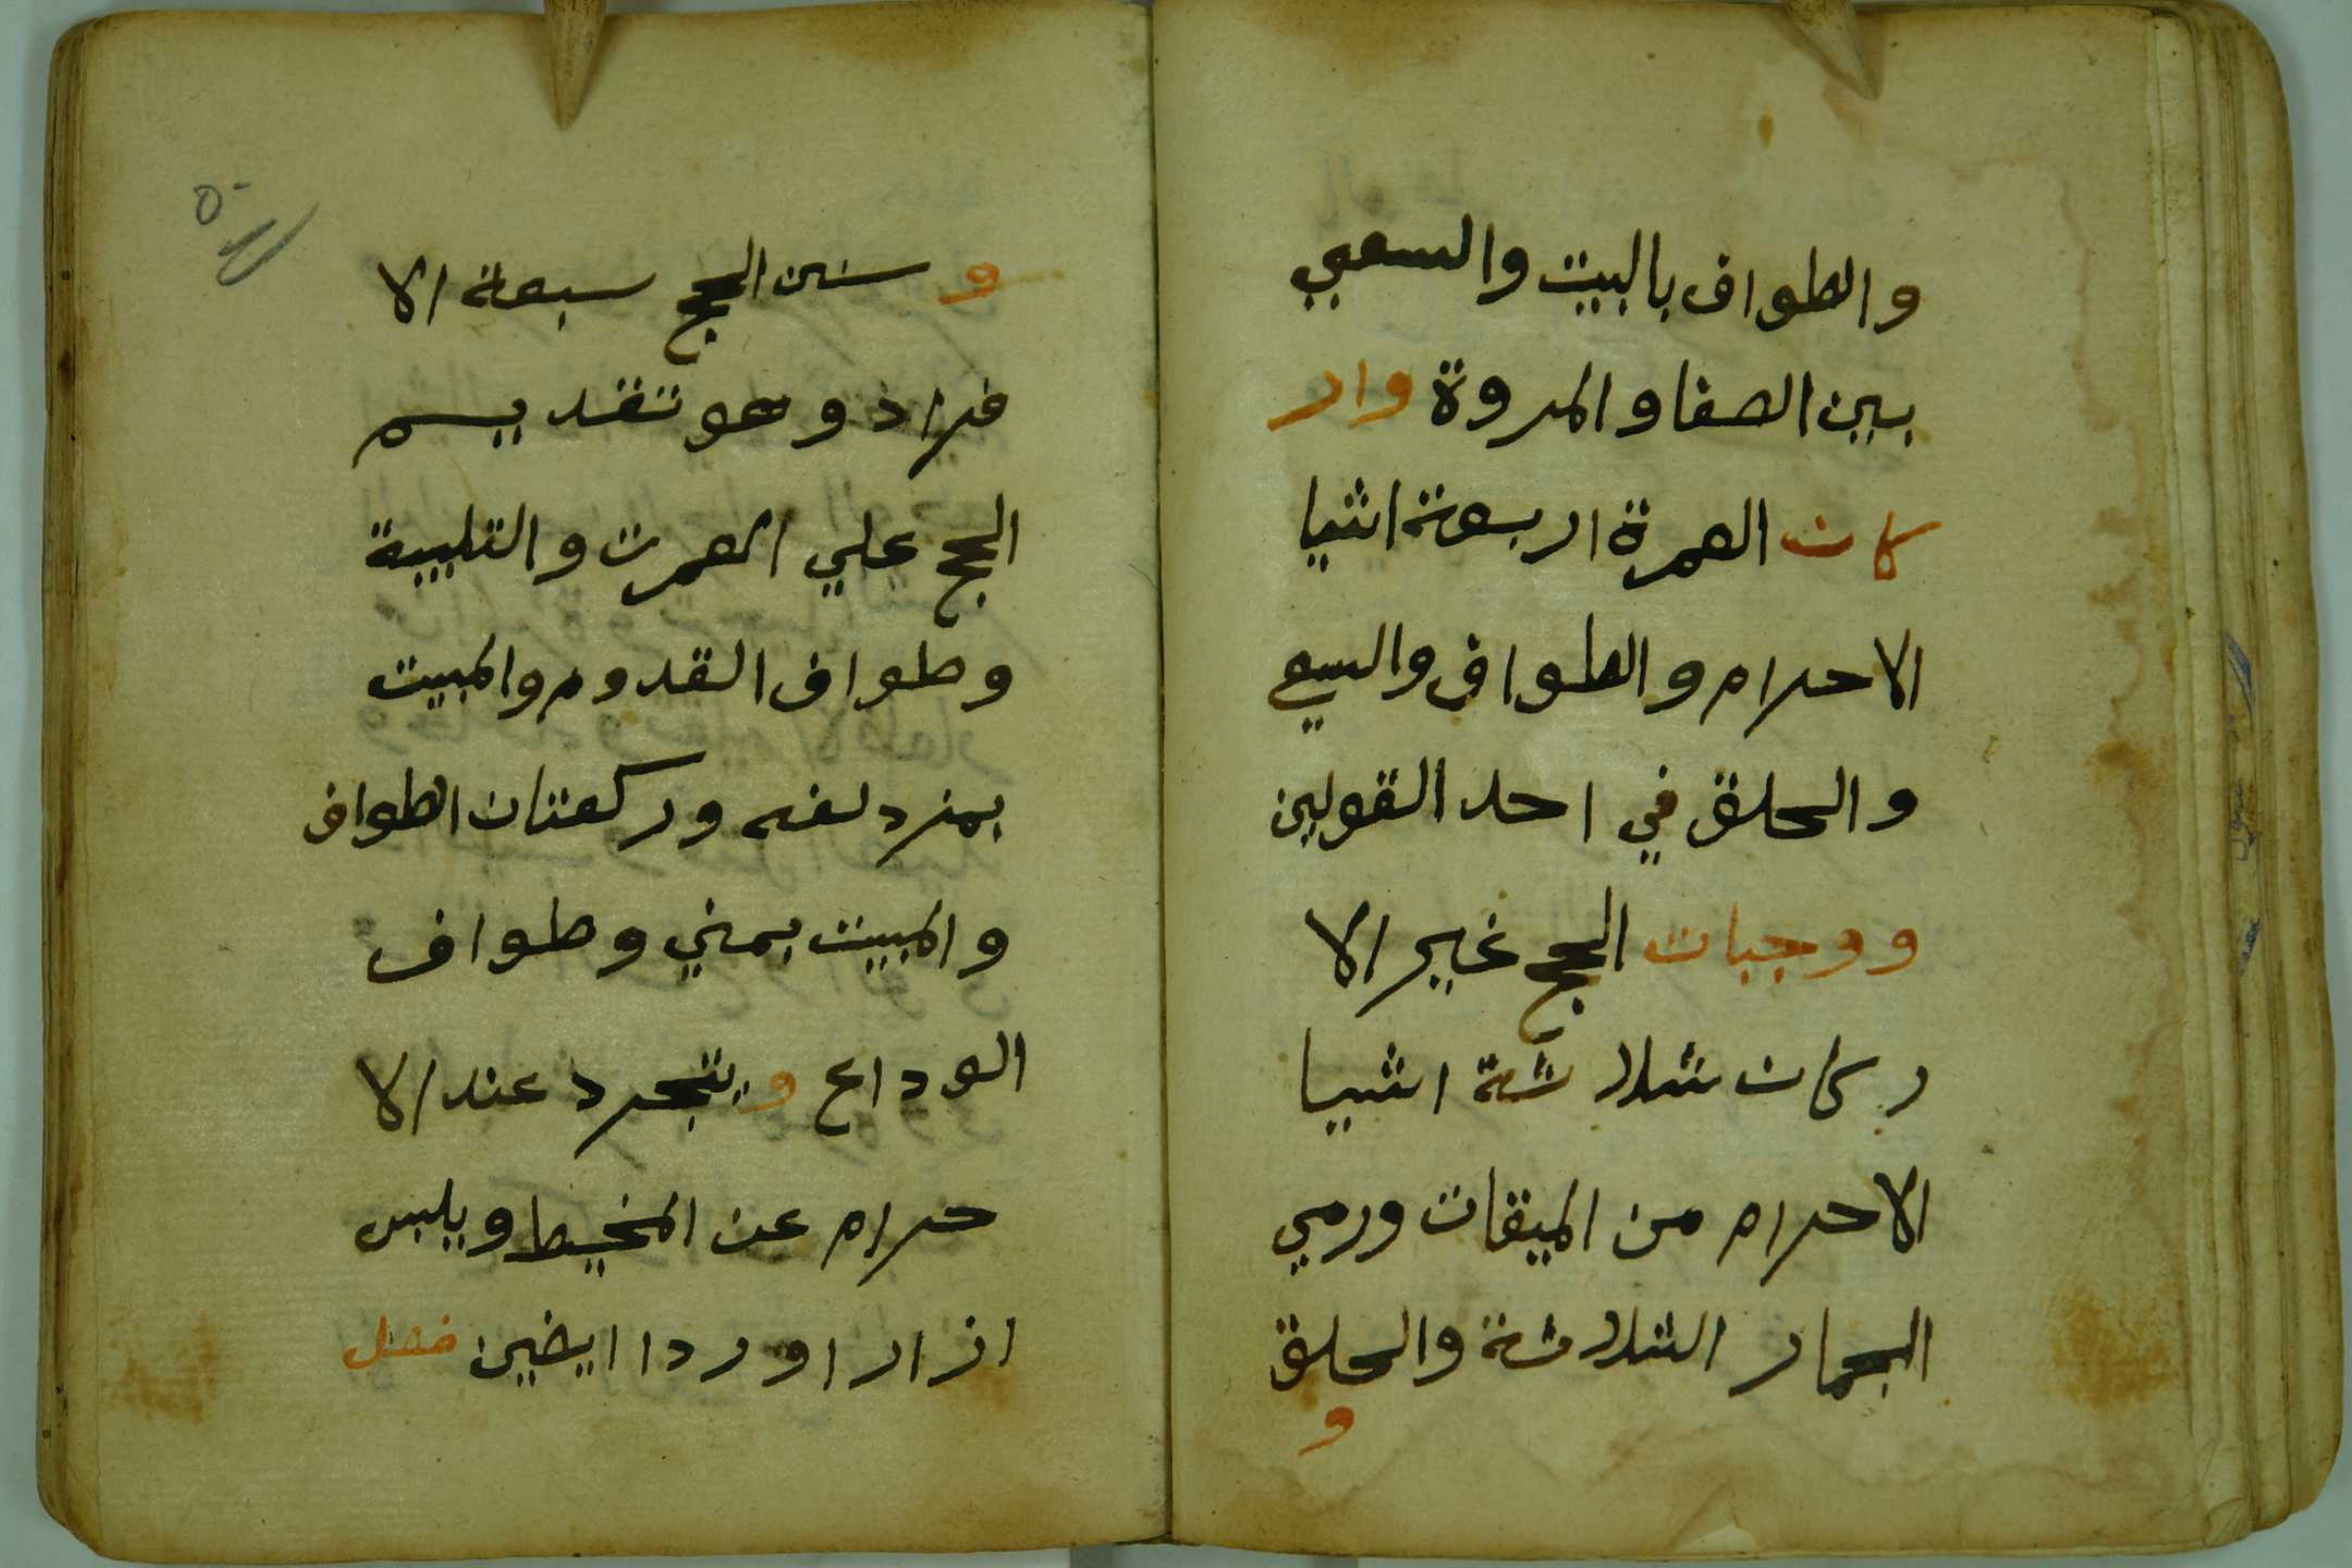 والطواف بالبيت والسعي
بين الصفا والمروة وار
كان العمرة اربعة اشيا
الاحرام والطواف والسعي
والحلق في احد القولين
ووجبات الحج غير الا
ركان ثلاثة اشيا
الاحرام من الميقات ورمي
الجمار الثلاثة والحلق
و
و سنن الحج سبعة الا
فراد وهو تقديم
الحج علي العمرت والتلبية
وطواف القدوم والمبيت
بمزدلفه وركعتان الطواف
والمبيت بمني وطواف
الوداع ويتجرد عند الا
حرام عن المخيط ويلبس
ازارا وردا ابيضين فصل